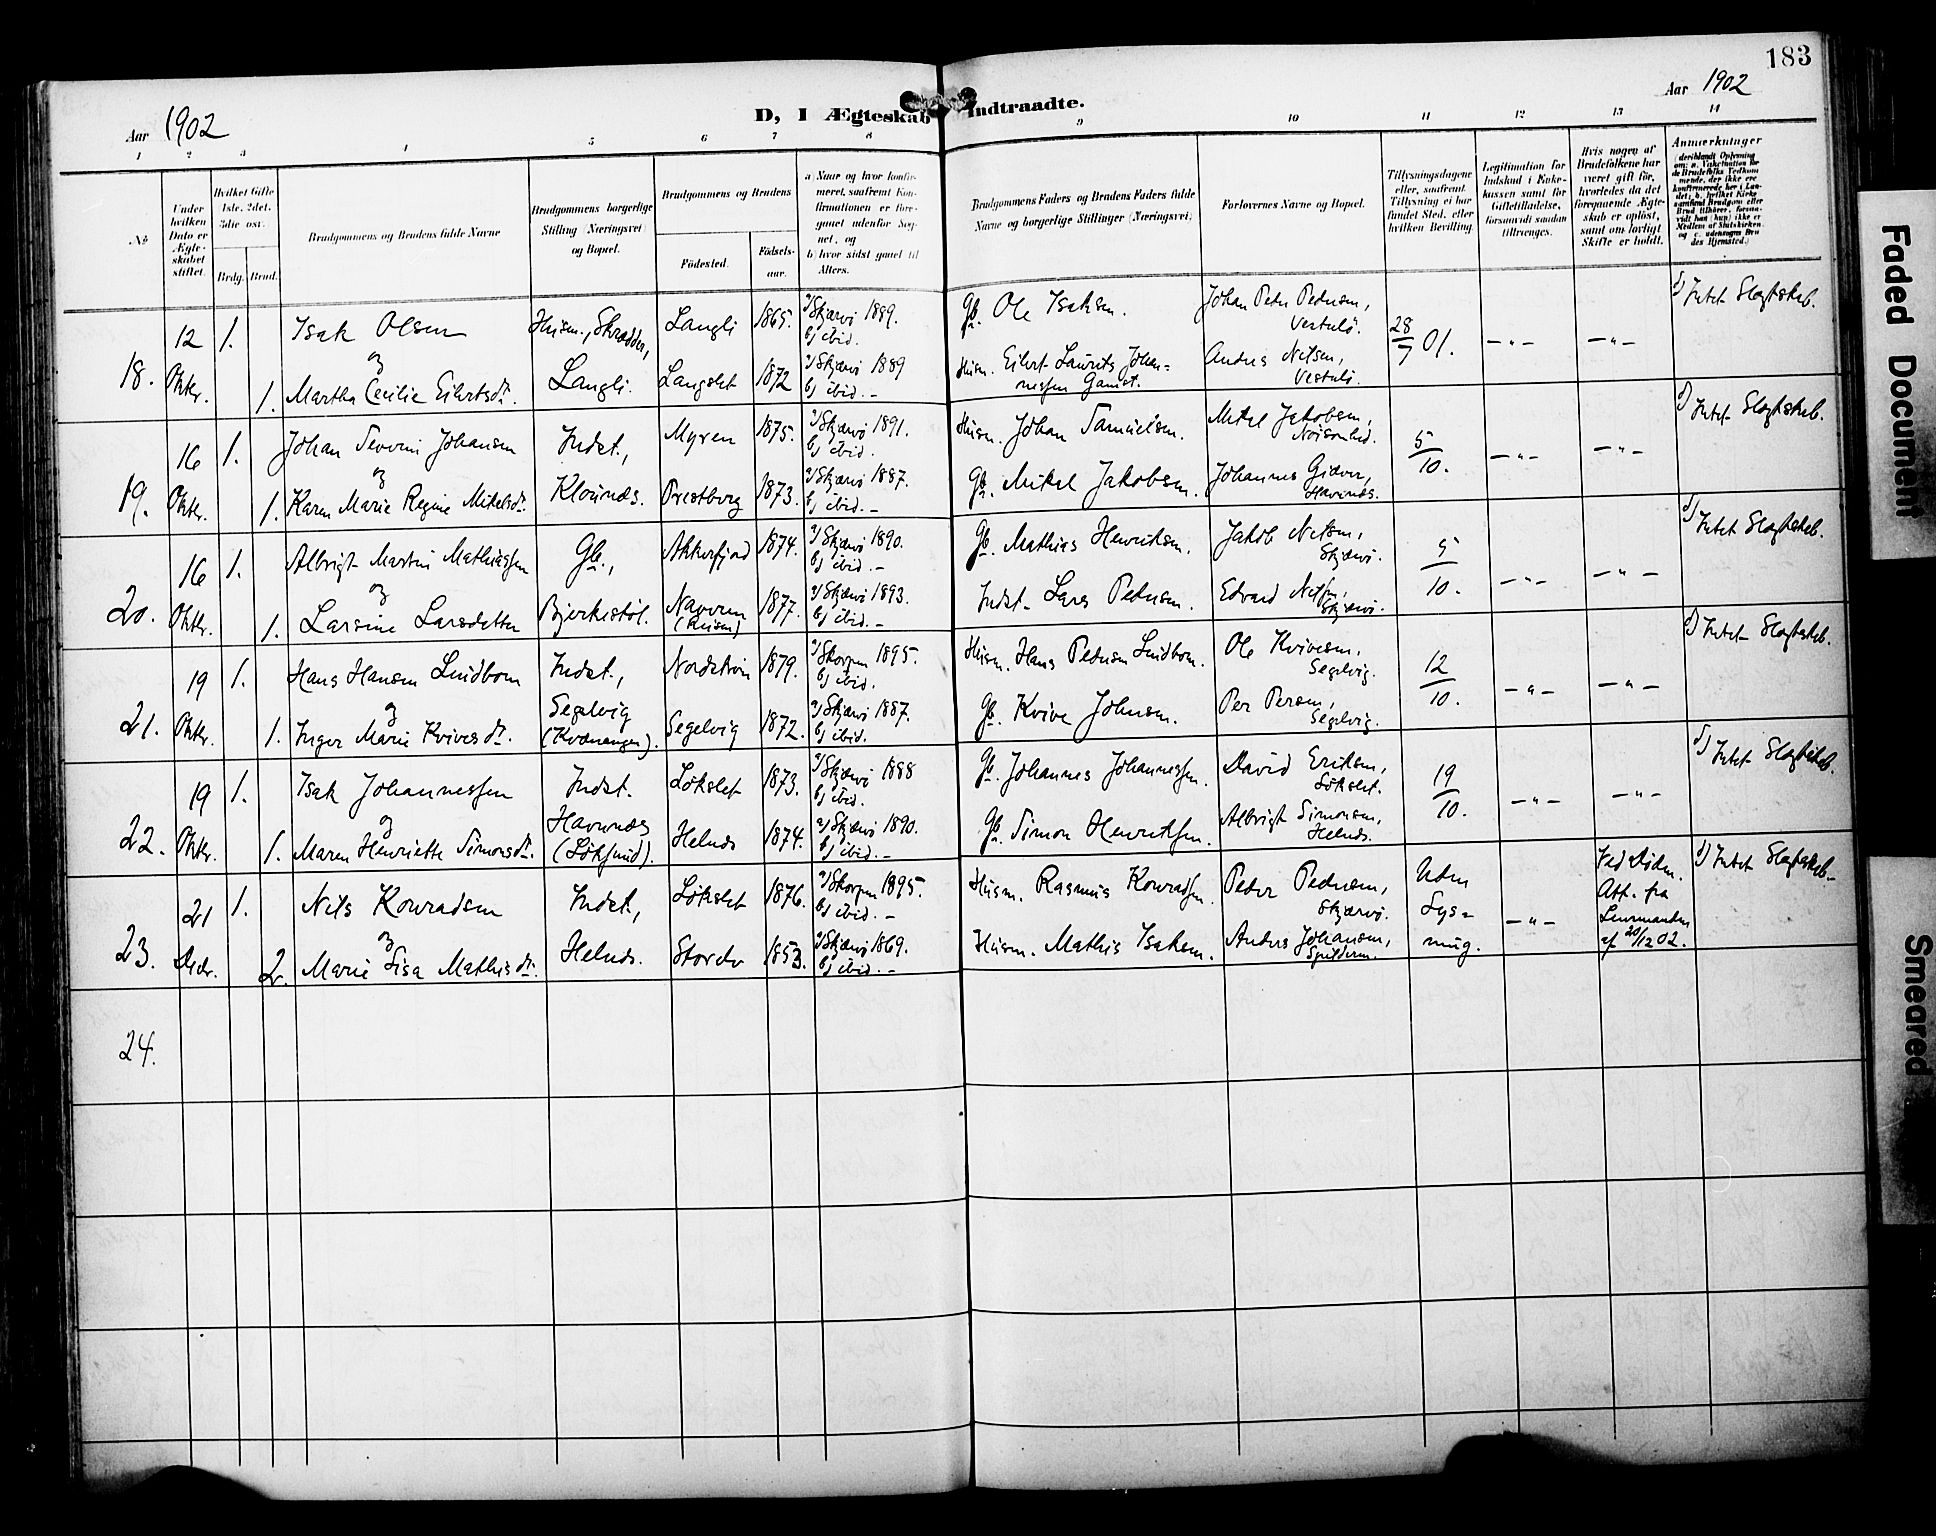 183
Aar 1902
D, I Ægteskab Indtraadte.
Aar 1902
1 2 3 4 5 6 7 8 9 10 11 12 13 14
No
Under hvilken Dato er Ægteskabet stiftet.
Hvilket Gifte 1ste, 2det, 3die osv.
Brdg. Brud.
Brudgommens og Brudens fulde Navne
Brudgommens borgerlige Stilling (Næringsvei) og Bopæl.
Brudgommens og Brudens
Födested.
Födsels-aar.
a) Naar og hvor konfirmeret, saafremt Konfirmationen er foregaaet udenfor Sognet, og
b) hvor sidst gaaet til Alters.
Brudgommens Faders og Brudens Faders fulde Navne og borgerlige Stillinger (Næringsvei)
Forlovernes Navne og Bopæl.
Tillysningsdagene eller, saafremt Tillysning ei har fundet Sted, efter hvilken Bevilling.
Legitimation for Indskud i Enkekassen samt for Giftetilladelse, forsaavidt saadan tiltrænges.
Hvis nogen af Brudefolkene har været gift før, hvorledes da det foregaaende Ægteskab er oplöst, samt om lovligt Skifte er holdt.
Anmærkninger
18. 12 Oktbr. 1. 1.
Isak Olsen
og
Martha Cecilie Eilertsdr.
Husm., Skrædder,
Langli.
Langli 1865. a) Skjærvö 1889. b) ibid.
Langslet 1872 a) Skjærvö 1889 b) ibid. –
Gb. Ole Isaksen.
Husm. Eilert Laurits Johan=
nessen Gamst.
Johan Peter Pedersen,
Anders Nilsen,
28/9 01. – " – – " –
Intet Slægtskab.
19. 16 Oktbr. 1. 1.
Johan Severin Johansen
og
Karen Marie Regine Mikelsdr.
Indst.,
Klounæs.
Myren 1875. a) Skjærvö 1891. b) ibid.
Prestberg 1873. a) Skjærvö 1887. b) ibid. –
Husm. Johan Samuelsen.
Gb. Mikel Jakobsen.
Mikel Jakobsen,
Johannes Giæver,
Havnnæs.
5/10. – " – – " –
Intet Slægtskab.
20. 16 Oktbr. 1. 1.
Albrigt Martin Mathiassen
og
Larsine Larsdatter
Gb.,
Bjerkestöl.
Akkarfjord 1874. a) Skjærvö 1890. b) ibid. –
1877. a) Skjærvö 1893. b) ibid. –
Gb. Mathias Henriksen.
Indst. Lars Pedersen.
Jakob Nilsen,
Skjærvö.
Edvard Nilsen,
Skjærvö.
5/10. – " – – " –
Intet Slægtskab.
21. 19 Oktbr. 1. 1.
Hans Hansen Lindbom
og
Inger Marie Kvivesdr.
Indst.,
Segelvig
(Kvænangen).
Nordström 1879. a) Skorpen 1895. b) ibid.
Segelvig 1872. a) Skjærvö 1887. b) ibid.
Husm. Hans Pedersen Lindbom.
Gb. Kvive Johnsen.
Ole Kvivesen,
Segelvig.
Per Persen,
Segelvig.
12/10. – " – – " –
Intet Slægtskab.
22. 19 Oktbr. 1. 1.
Isak Johannessen
og
Maren Henriette Simonsdr.
Indst.
Havnnæs
(Löksund).
Lökslet 1873. a) Skjærvö 1888 b) ibid.
Helnes 1874. a) Skjærvö 1890. b) ibid. –
Gb. Johannes Johannessen.
Gb. Simon Henriksen.
David Eriksen,
Lökslet.
Albrigt Simonsen,
Helnes.
19/10. – " – – " –
Intet Slægtskab.
23. 21 Decbr. 1. 2.
Nils Konradsen
og
Marie Lisa Mathisdr.
Indst.,
Helnes.
Lökslet 1876. a) Skorpen 1895. b) ibid. –
1853. a) Skjærvö 1869. b) ibid. –
Husm. Rasmus Konradsen.
Husm. Mathis Isaksen.
Peder Pedersen,
Skjærvö.
Anders Johansen,
Spilderen.
Uden
Lys=
ning.
– " –
Ved Döden.
Att. fra
Lensmanden
af 20/12 02.
Intet Slægtskab. –
24.
Faded Document
Smeared